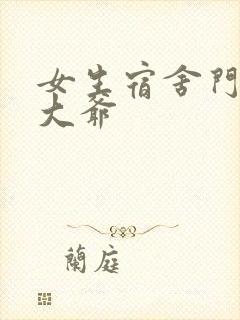 女生宿舍門
大爺
蘭庭